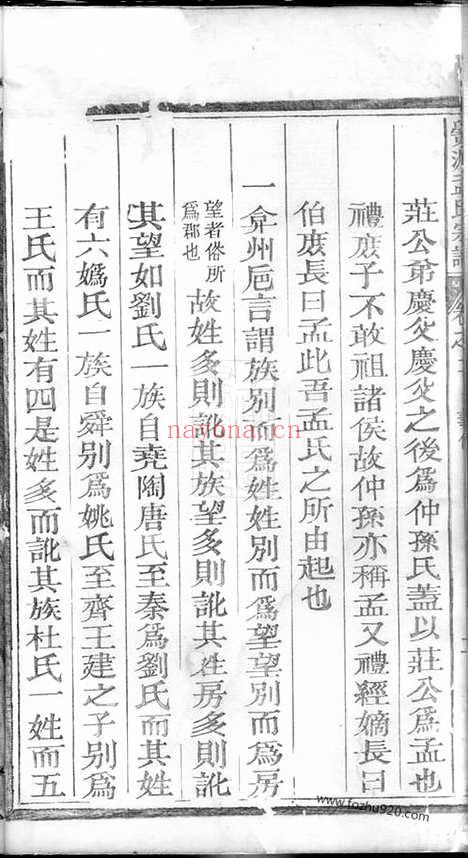 莊公弟慶父慶父之後爲仲孫氏蓋以莊公爲孟也
禮庻子不敢祖諸侯故仲孫亦稱孟又禮經嫡長曰
伯庻長曰孟此吾孟氏之所由起也
一弇州巵言謂族別而爲姓姓別而爲望望別而爲房
望者俗所
爲郡也
故姓多則訛其族望多則訛其姓房多則訛
其望如劉氏一族自堯陶唐氏至秦爲劉氏而其姓
有六媯氏一族自舜別爲姚氏至齊王建之子別爲
王氏而其姓有四是姓多而訛其族杜氏一姓而五
nayona.cn
www.fozhu920.com